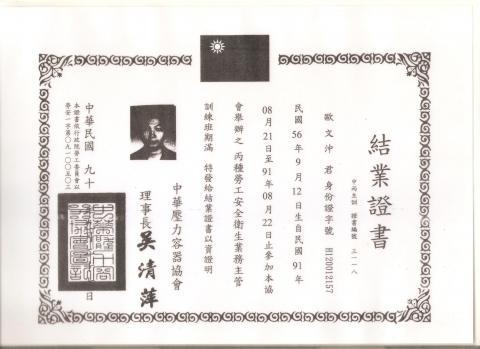 結業證書
歐文沖 君 身份證字號 H120012157
民國 56年 9月 12日生自民國 91年
08月21日至91年08月22日止參加本協
會舉辦之 丙種勞工安全衛生業務主管
訓練班期滿 特發給結業證書以資證明
中華壓力容器協會
理事長 吳清萍
中華民國 九十
日
本證書依行政院勞工委員會以